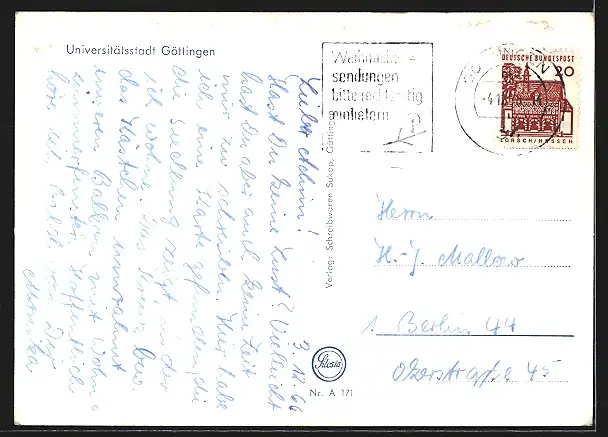 Universitätsstadt Göttingen
Weihnachts-
sendungen
bitte rechtzeitig
einliefern
GÖTTINGEN
DEUTSCHE BUNDESPOST
20
LORSCH/HESSEN
3.12.66
Lieber Achim!
Hast Du keine Lust? Vielleicht
hast du aber auch keine Zeit
mir zu schreiben. Hier habe
ich eine Karte gefunden, die
die Siedlung zeigt in der
ich wohne. Das Kreuz bzw.
das Kästchen umrahmt
unseren Balkon mit Wohn-
zimmerfenster. Hoffentlich
höre ich bald von Dir
Monika
Verlag: Schreibwaren Sukop, Göttingen
Herrn
H.-J. Mallow
1 Berlin 44
Okerstraße 45
Nr. A 171